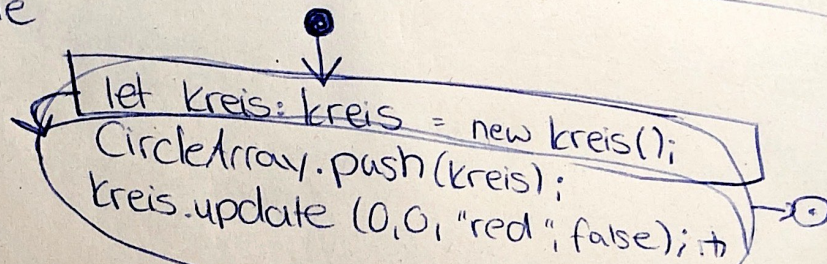 e
let kreis: kreis = new kreis();
CircleArray.push(kreis);
kreis.update (0,0, "red", false);